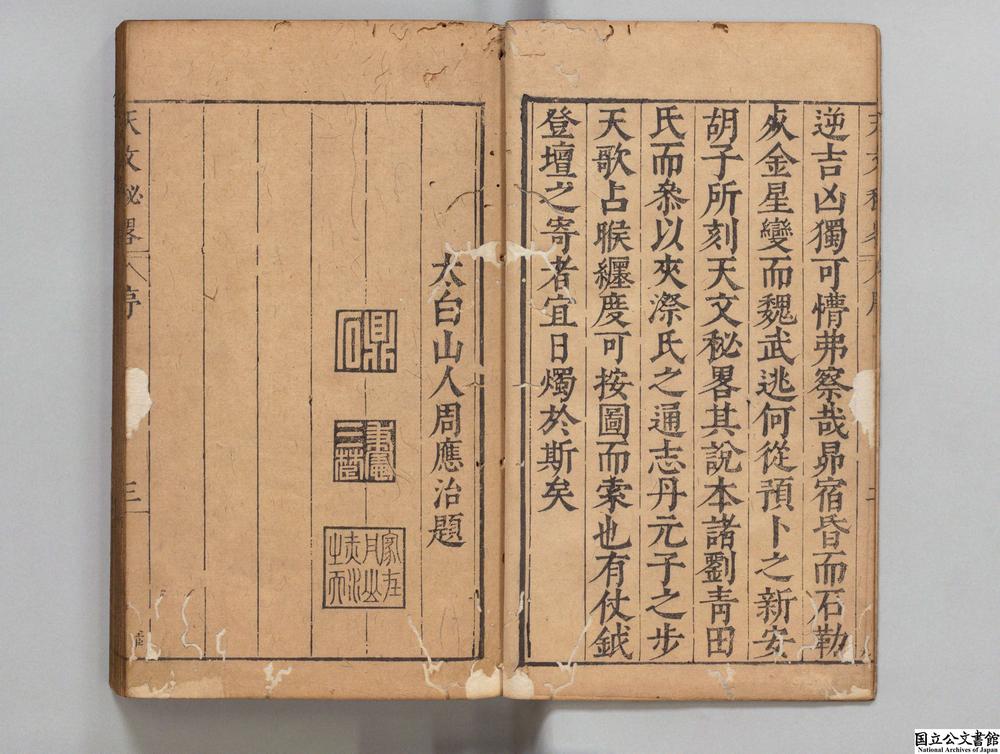 逆吉凶獨可懵弗察哉昴宿昏而石勒
灾金星變而魏武逃何從預卜之新安
胡子所刻天文秘畧其說本諸劉青田
氏而叅以夾漈氏之通志丹元子之步
天歌占睺纒度可按圖而索也有仗鉞
登壇之寄者宜日燭於斯矣
太白山人周應治題
天文秘畧 序 三
国立公文書館
National Archives of Japan